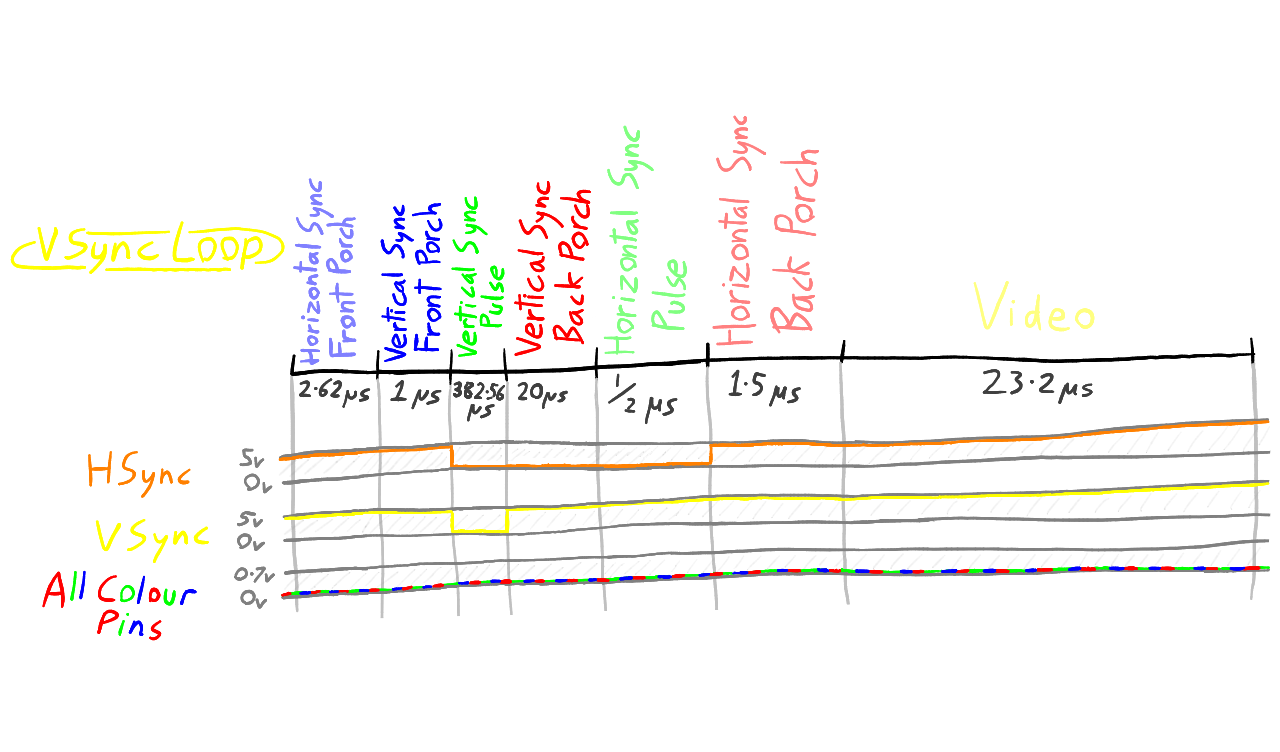 VSync Loop
Horizontal Sync
Front Porch
Vertical Sync
Front Porch
Vertical Sync
Pulse
Vertical Sync
Back Porch
Horizontal Sync
Pulse
Horizontal Sync
Back Porch
Video
2.62µs
1µs
382.56
µs
20µs
1/2 µs
1.5µs
23.2µs
HSync
5v
0v
VSync
5v
0v
All Colour
Pins
0.7v
0v